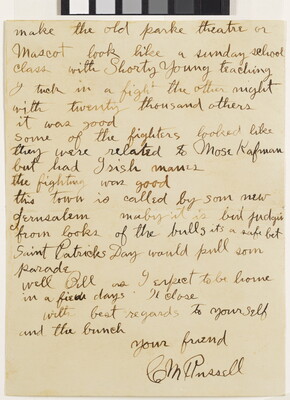 make the old parke theatre or
Mascot look like a sunday school
class with Shorty Young teaching
I tuck in a fight the other night
with twenty thousand others
it was good
some of the fighters looked like
they were related to Mose Kafman
but had Irish names
the fighting was good
this town is called by som new
Jerusalem maby it is but judgin
from looks of the bulls its a safe bet
Saint Patricks Day would pull som
parade
well Bill as I expect to be home
in a few days Il close
with best regards to yourself
and the bunch
your friend
C M Russell